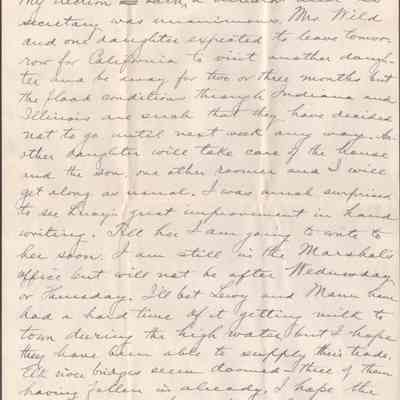 My election
secretary was unanimous. Mrs. Wild
and one daughter expected to leave tomor-
row for California to visit another daugh-
ter and be away for two or three months but
the flood conditions through Indiana and
Illinois are such that they have decided
not to go until next week any way. An-
other daughter will take care of the house
and the son, one other roomer and I will
get along as usual. I was much surprised
to see great improvement in hand
writing. Tell her I am going to write to
her soon. I am still in the Marshals
office but will not be after Wednesday
or Thursday. I'll bet and have
had a hard time of it getting milk to
town during the high water but I hope
they have been able to supply their trade.
river bridges seem doomed three of them
having fallen in already. I hope the